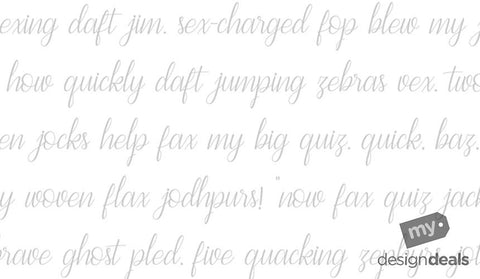 exing daft jim. sex-charged fop blew my j
how quickly daft jumping zebras vex. two
en jocks help fax my big quiz. quick. baz.
y woven flax jodhpurs! "now fax quiz jack
brave ghost pled. five quacking zephyrs jolt
my
designdeals